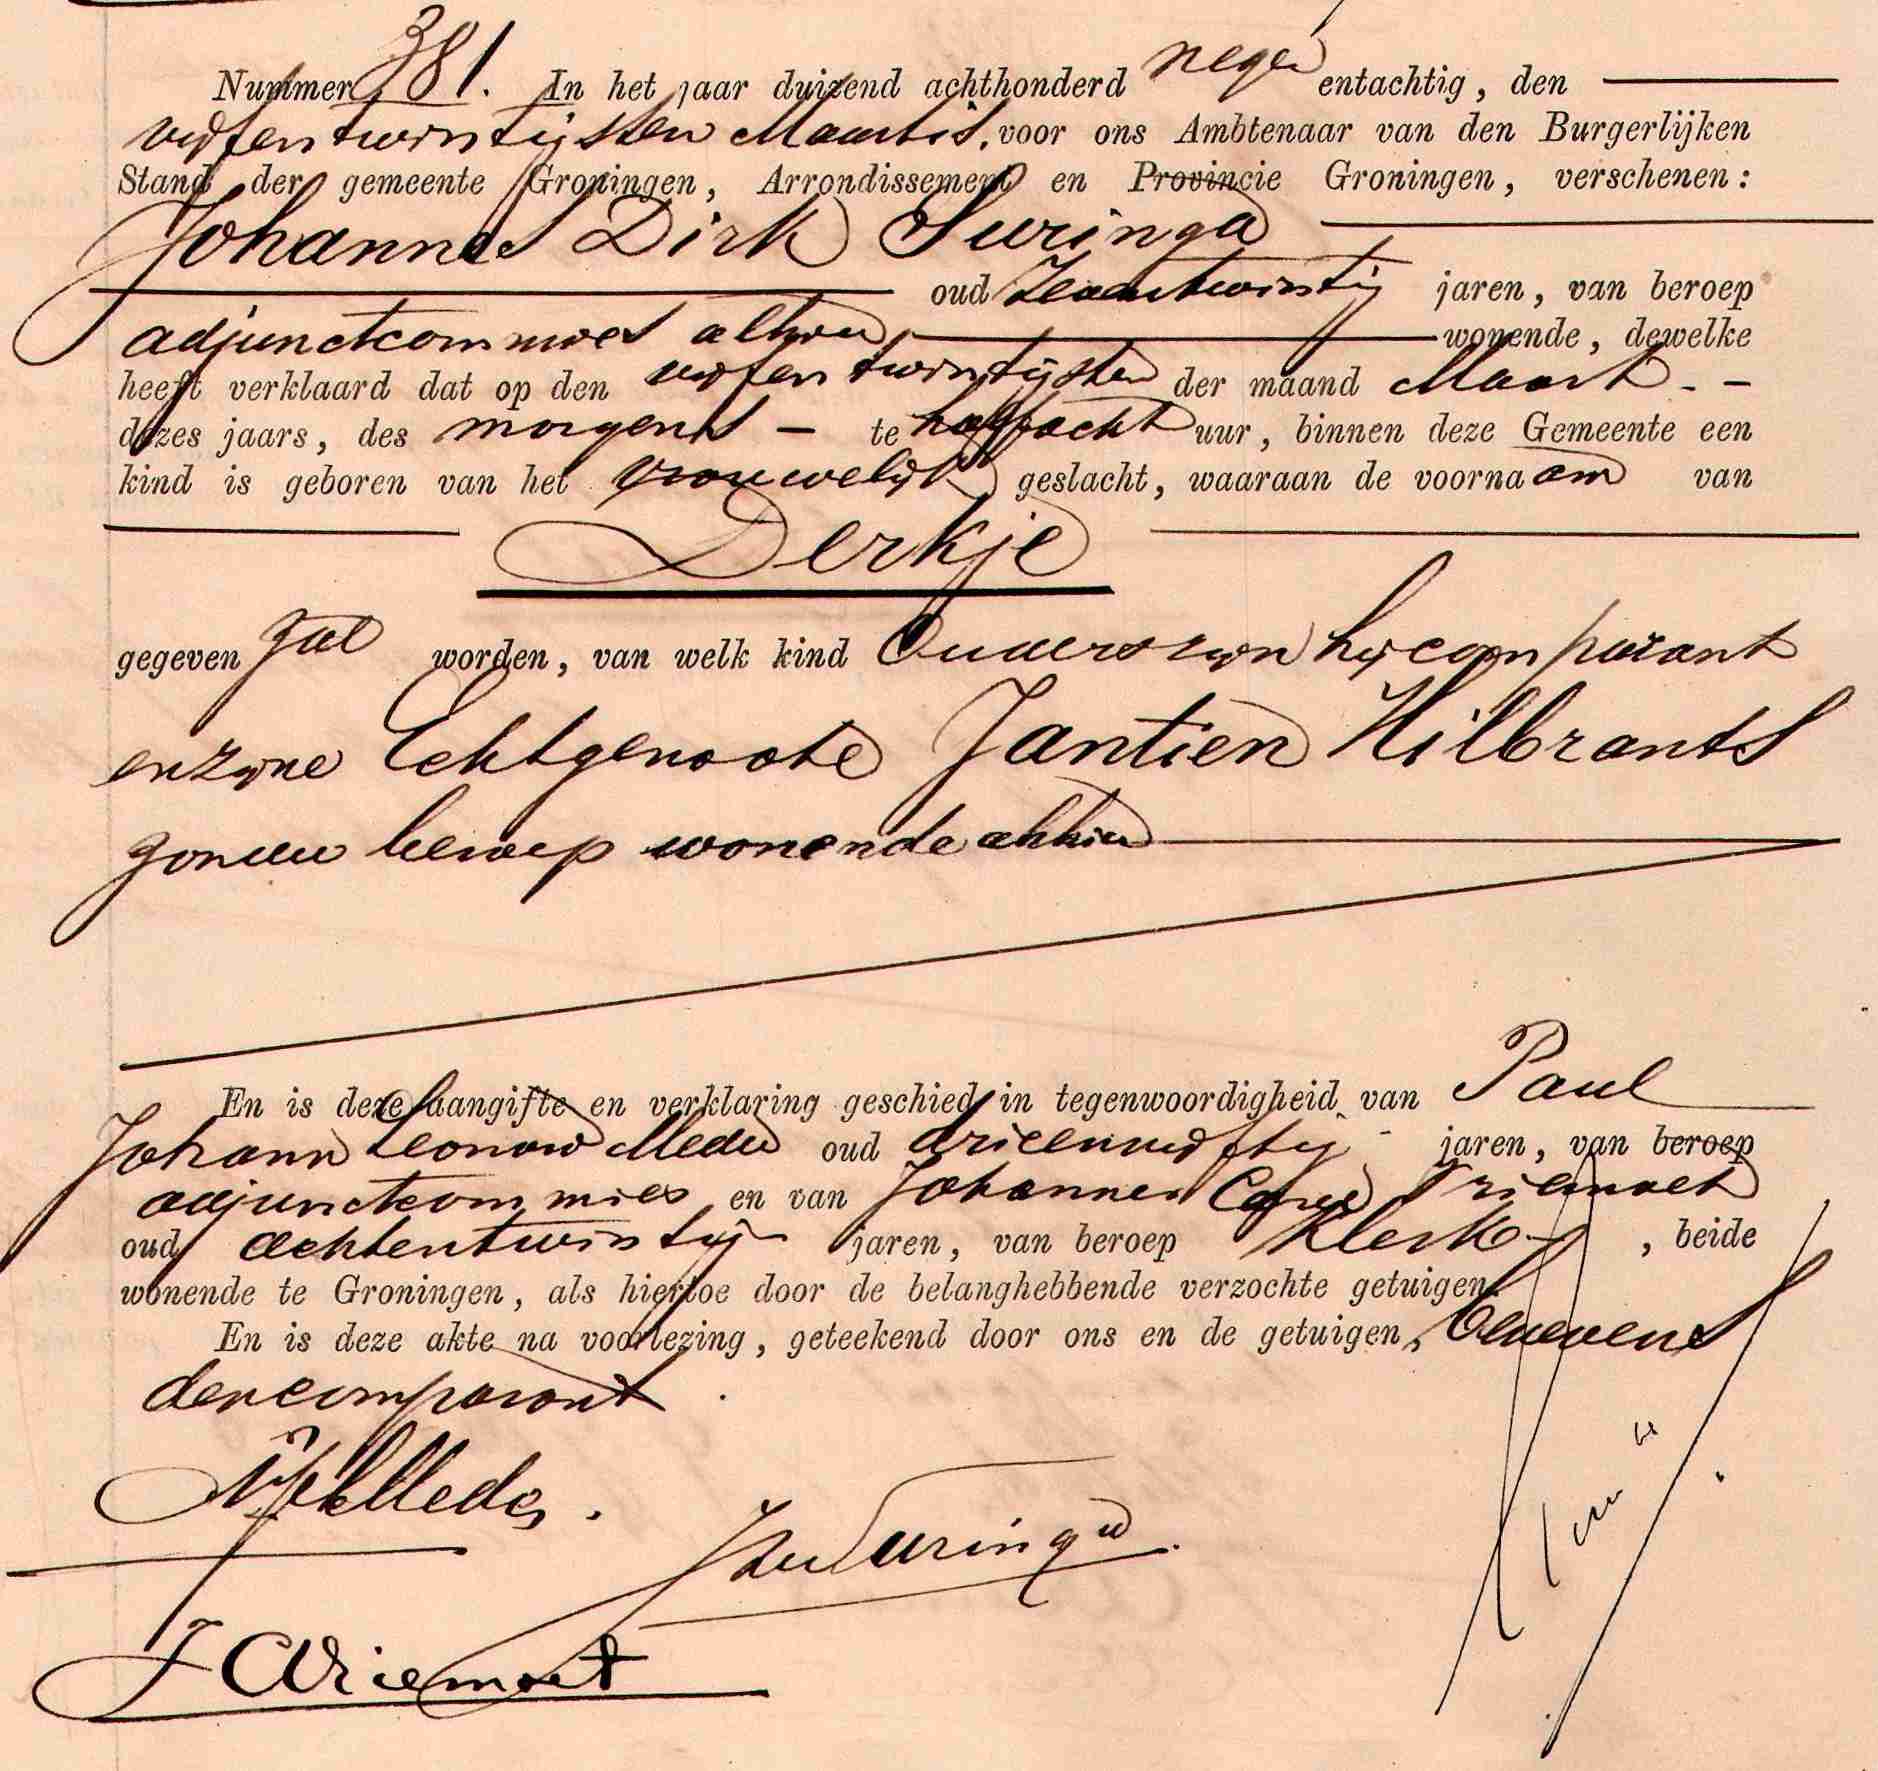 Nummer 381. In het jaar duizend achthonderd negen entachtig, den
vijfentwintigsten Maart, voor ons Ambtenaar van den Burgerlijken
Stand der gemeente Groningen, Arrondissement en Provincie Groningen, verschenen:
Johannes Dirk Suringa
oud jaren, van beroep
adjunctcommies alhier wonende, dewelke
heeft verklaard dat op den vijfentwintigsten der maand Maart
dezes jaars, des morgens te halfacht uur, binnen deze Gemeente een
kind is geboren van het vrouwelijk geslacht, waaraan de voornaam van
Derkje
gegeven zal worden, van welk kind Ouders zijn hij comparant
en zijne Echtgenoote Jantien Hilbrants
zonder beroep wonende alhier
En is deze aangifte en verklaring geschied in tegenwoordigheid van Paul
Johann Leonard Meder oud drieenvijftig jaren, van beroep
adjunctcommies en van Johannes Vriemoet
oud achtentwintig jaren, van beroep Klerk, beide
wonende te Groningen, als hiertoe door de belanghebbende verzochte getuigen.
En is deze akte na voorlezing, geteekend door ons en de getuigen, benevens
den comparant.
Meder.
Suringa
J C Vriemoet